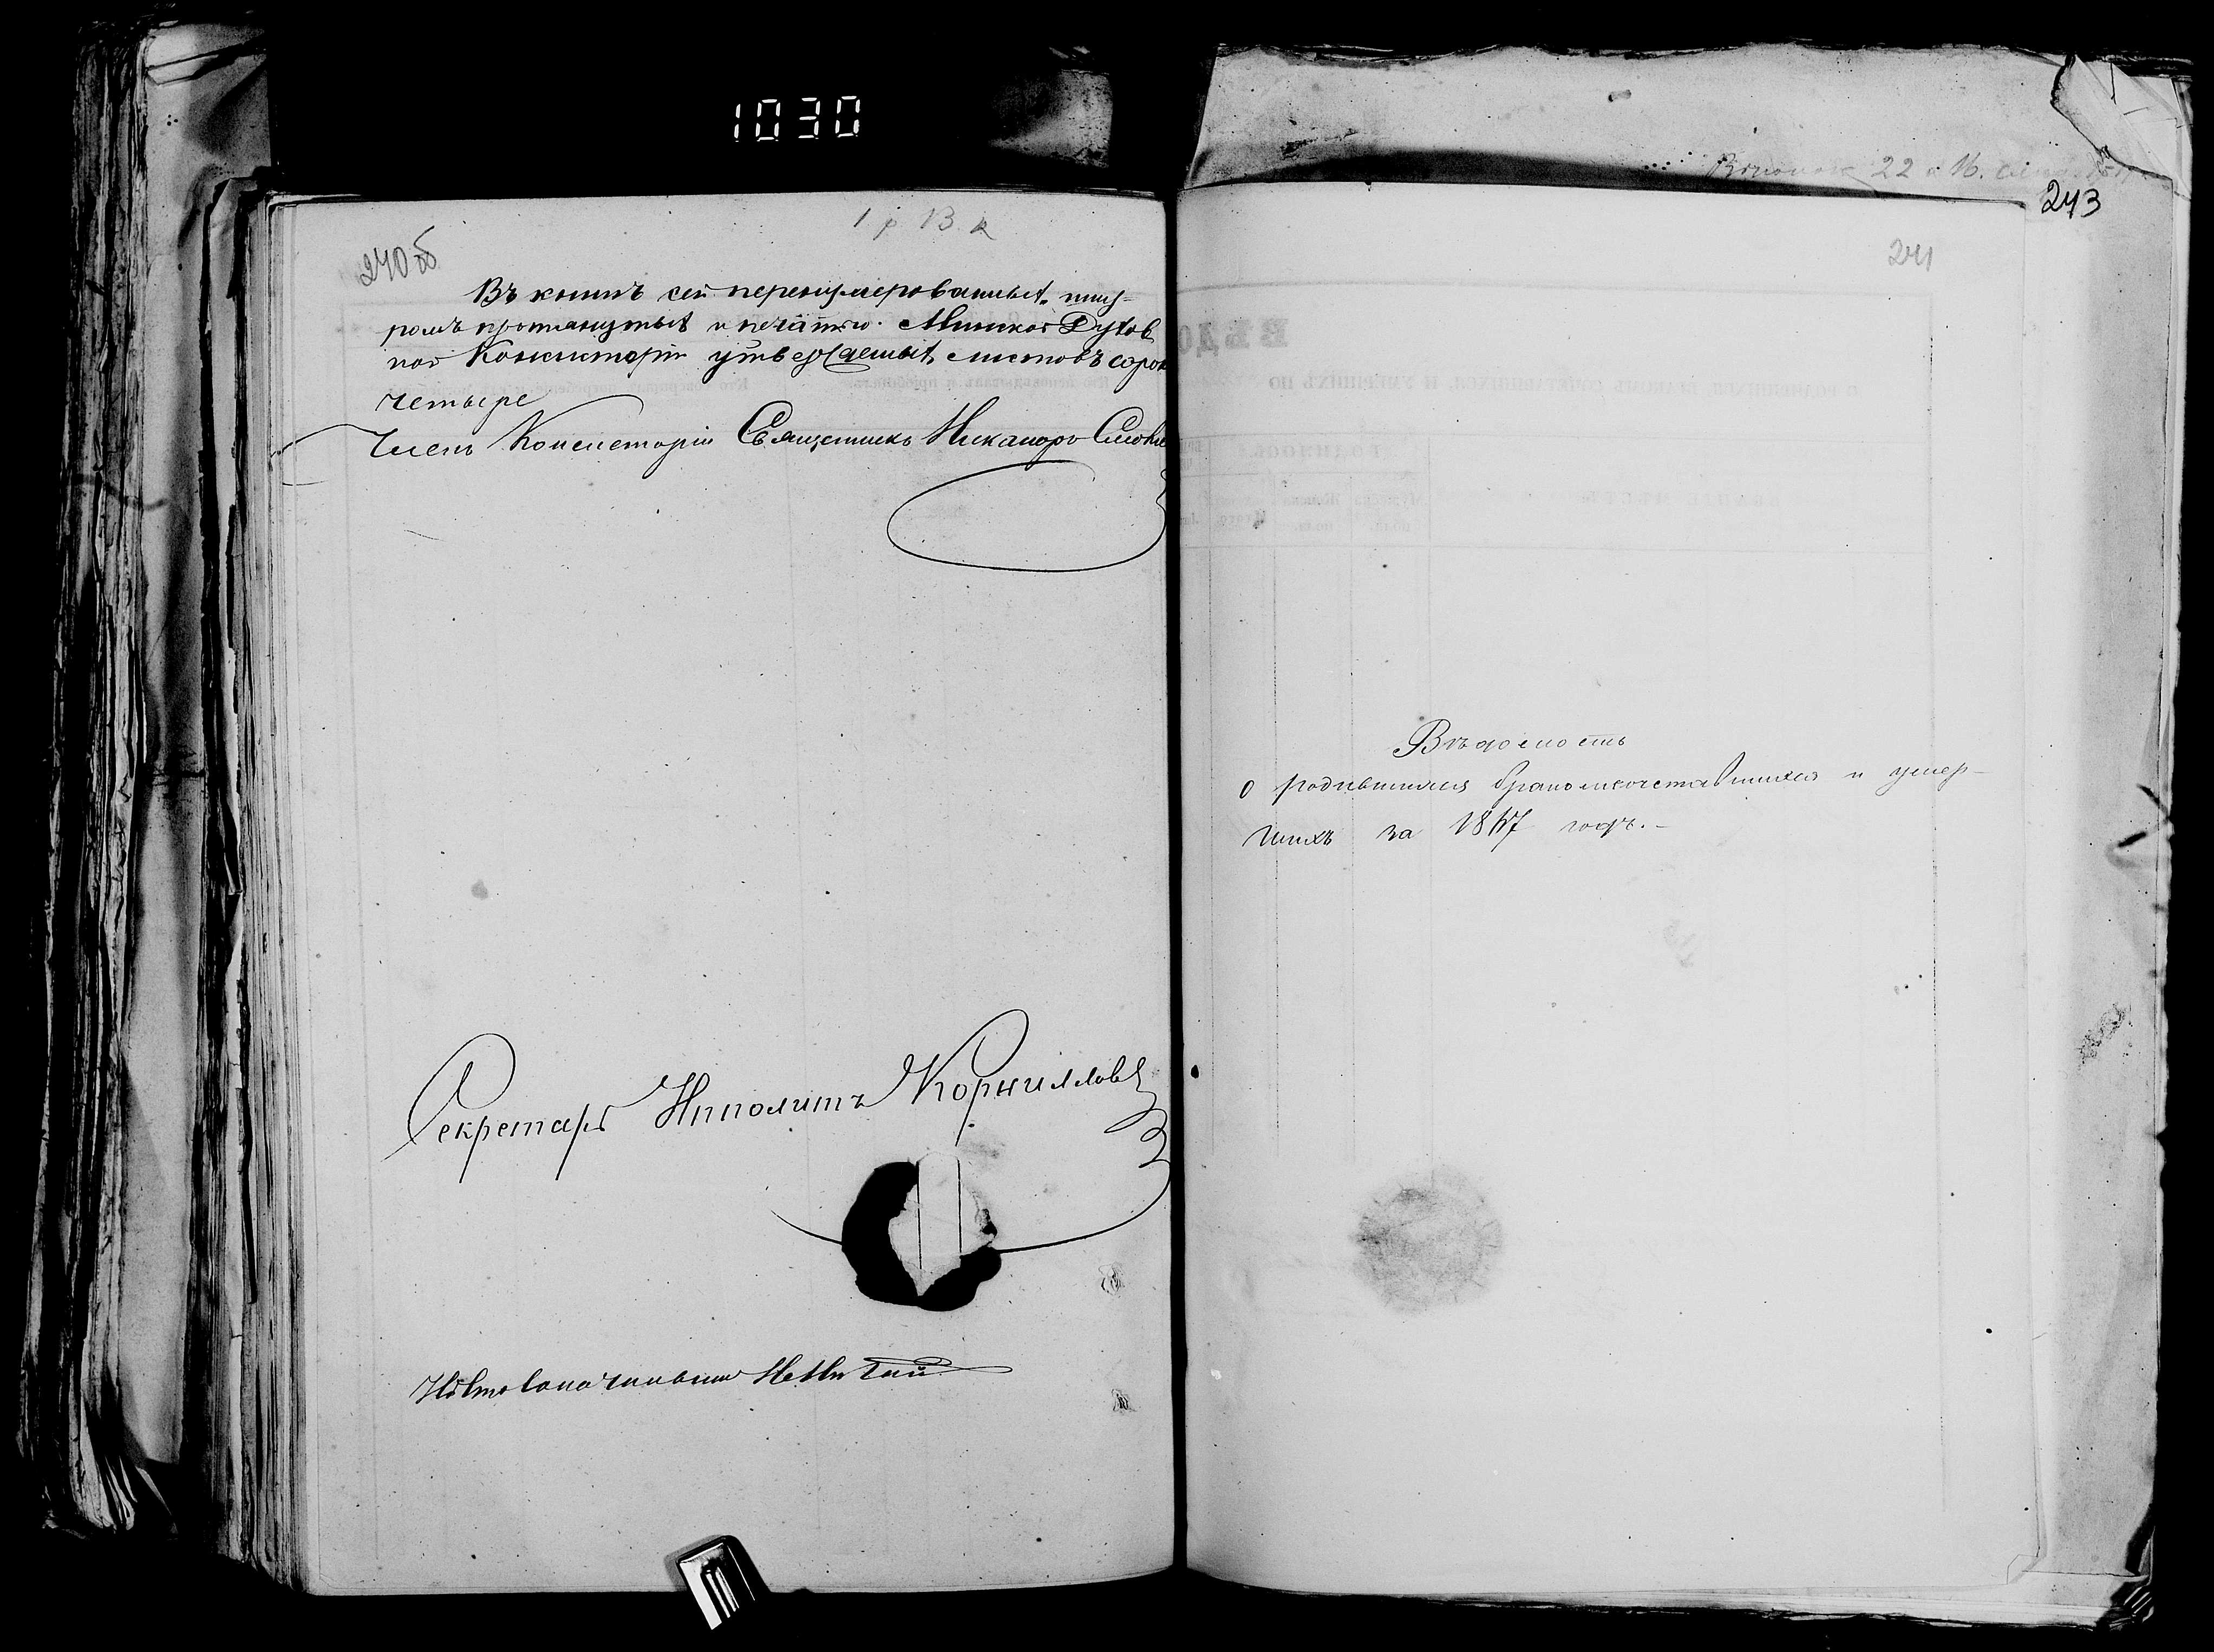 1030
1 р 13 к
240 об
Въ книгѣ сей перенумерованныхъ, шну-
ромъ протянутыхъ и печатью Минской Духов
ной Консисторіи утвержденныхъ листовъ сорок
четыре
Членъ Консисторіи Священникъ Никаноръ
Секретарь Ипполитъ Корниловъ
22 16.
243
241
Вѣдомость
о родившихся бракомсочетавшихся и умер-
шихъ за 1867 годъ.-